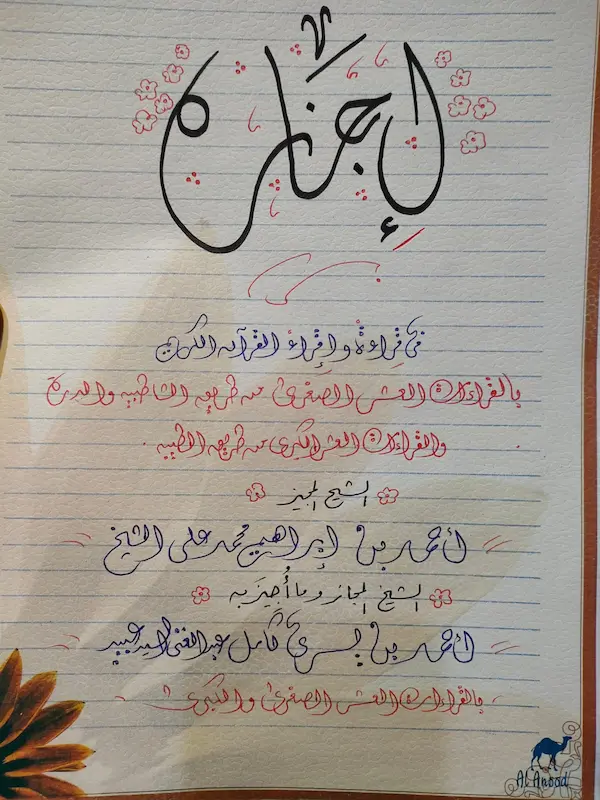 إجازة
في قراءة وإقراء القرآن الكريم
بالقراءات العشر الصغرى من طريق الشاطبية والدرة
والقراءات العشر الكبرى من طريق الطيبة
الشيخ المجيز
أحمد بن إبراهيم محمد على الشيخ
الشيخ المجاز وما أُجيزَ به
أحمد بن يسري كامل عبد الغنى السيد عبيد
بالقراءات العشر الصغرى والكبرى
Al Anood